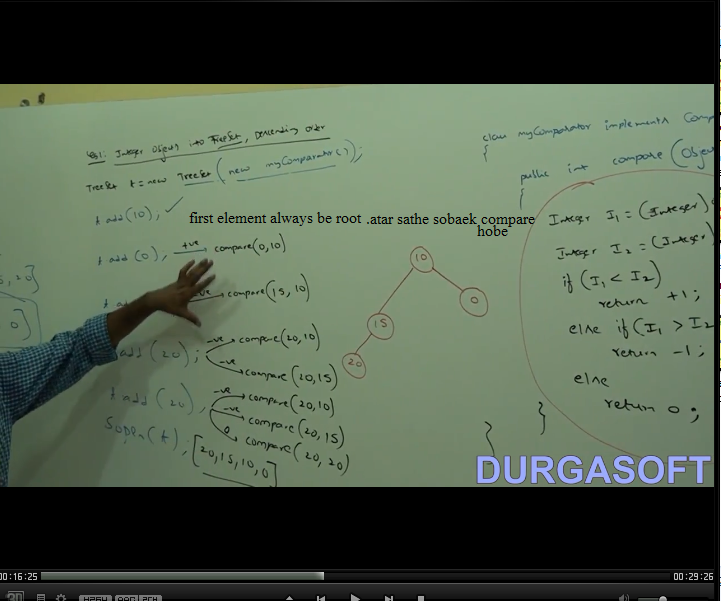 Integer Objects into TreeSet, Descending order
TreeSet t = new TreeSet(new myComparator());
t add(10),
first element always be root .atar sathe sobaek compare
hobe
t add(0), +ve compare(0,10)
compare(15,10)
add(20); -ve compare(20,10)
-ve compare(20,15)
t add(20), -ve compare(20,10)
-ve compare(20,15)
0 compare(20,20)
Sopln(t), [20,15,10,0]
0]
10
15
0
20
class myComparator implements Comp
{
public int compare(Obje
{
Integer I1 = (Integer)
Integer I2 = (Integer)
if (I1 < I2)
return +1;
else if (I1 > I2
return -1;
else
return 0;
}
}
DURGASOFT
00:16:25
00:29:26
3D